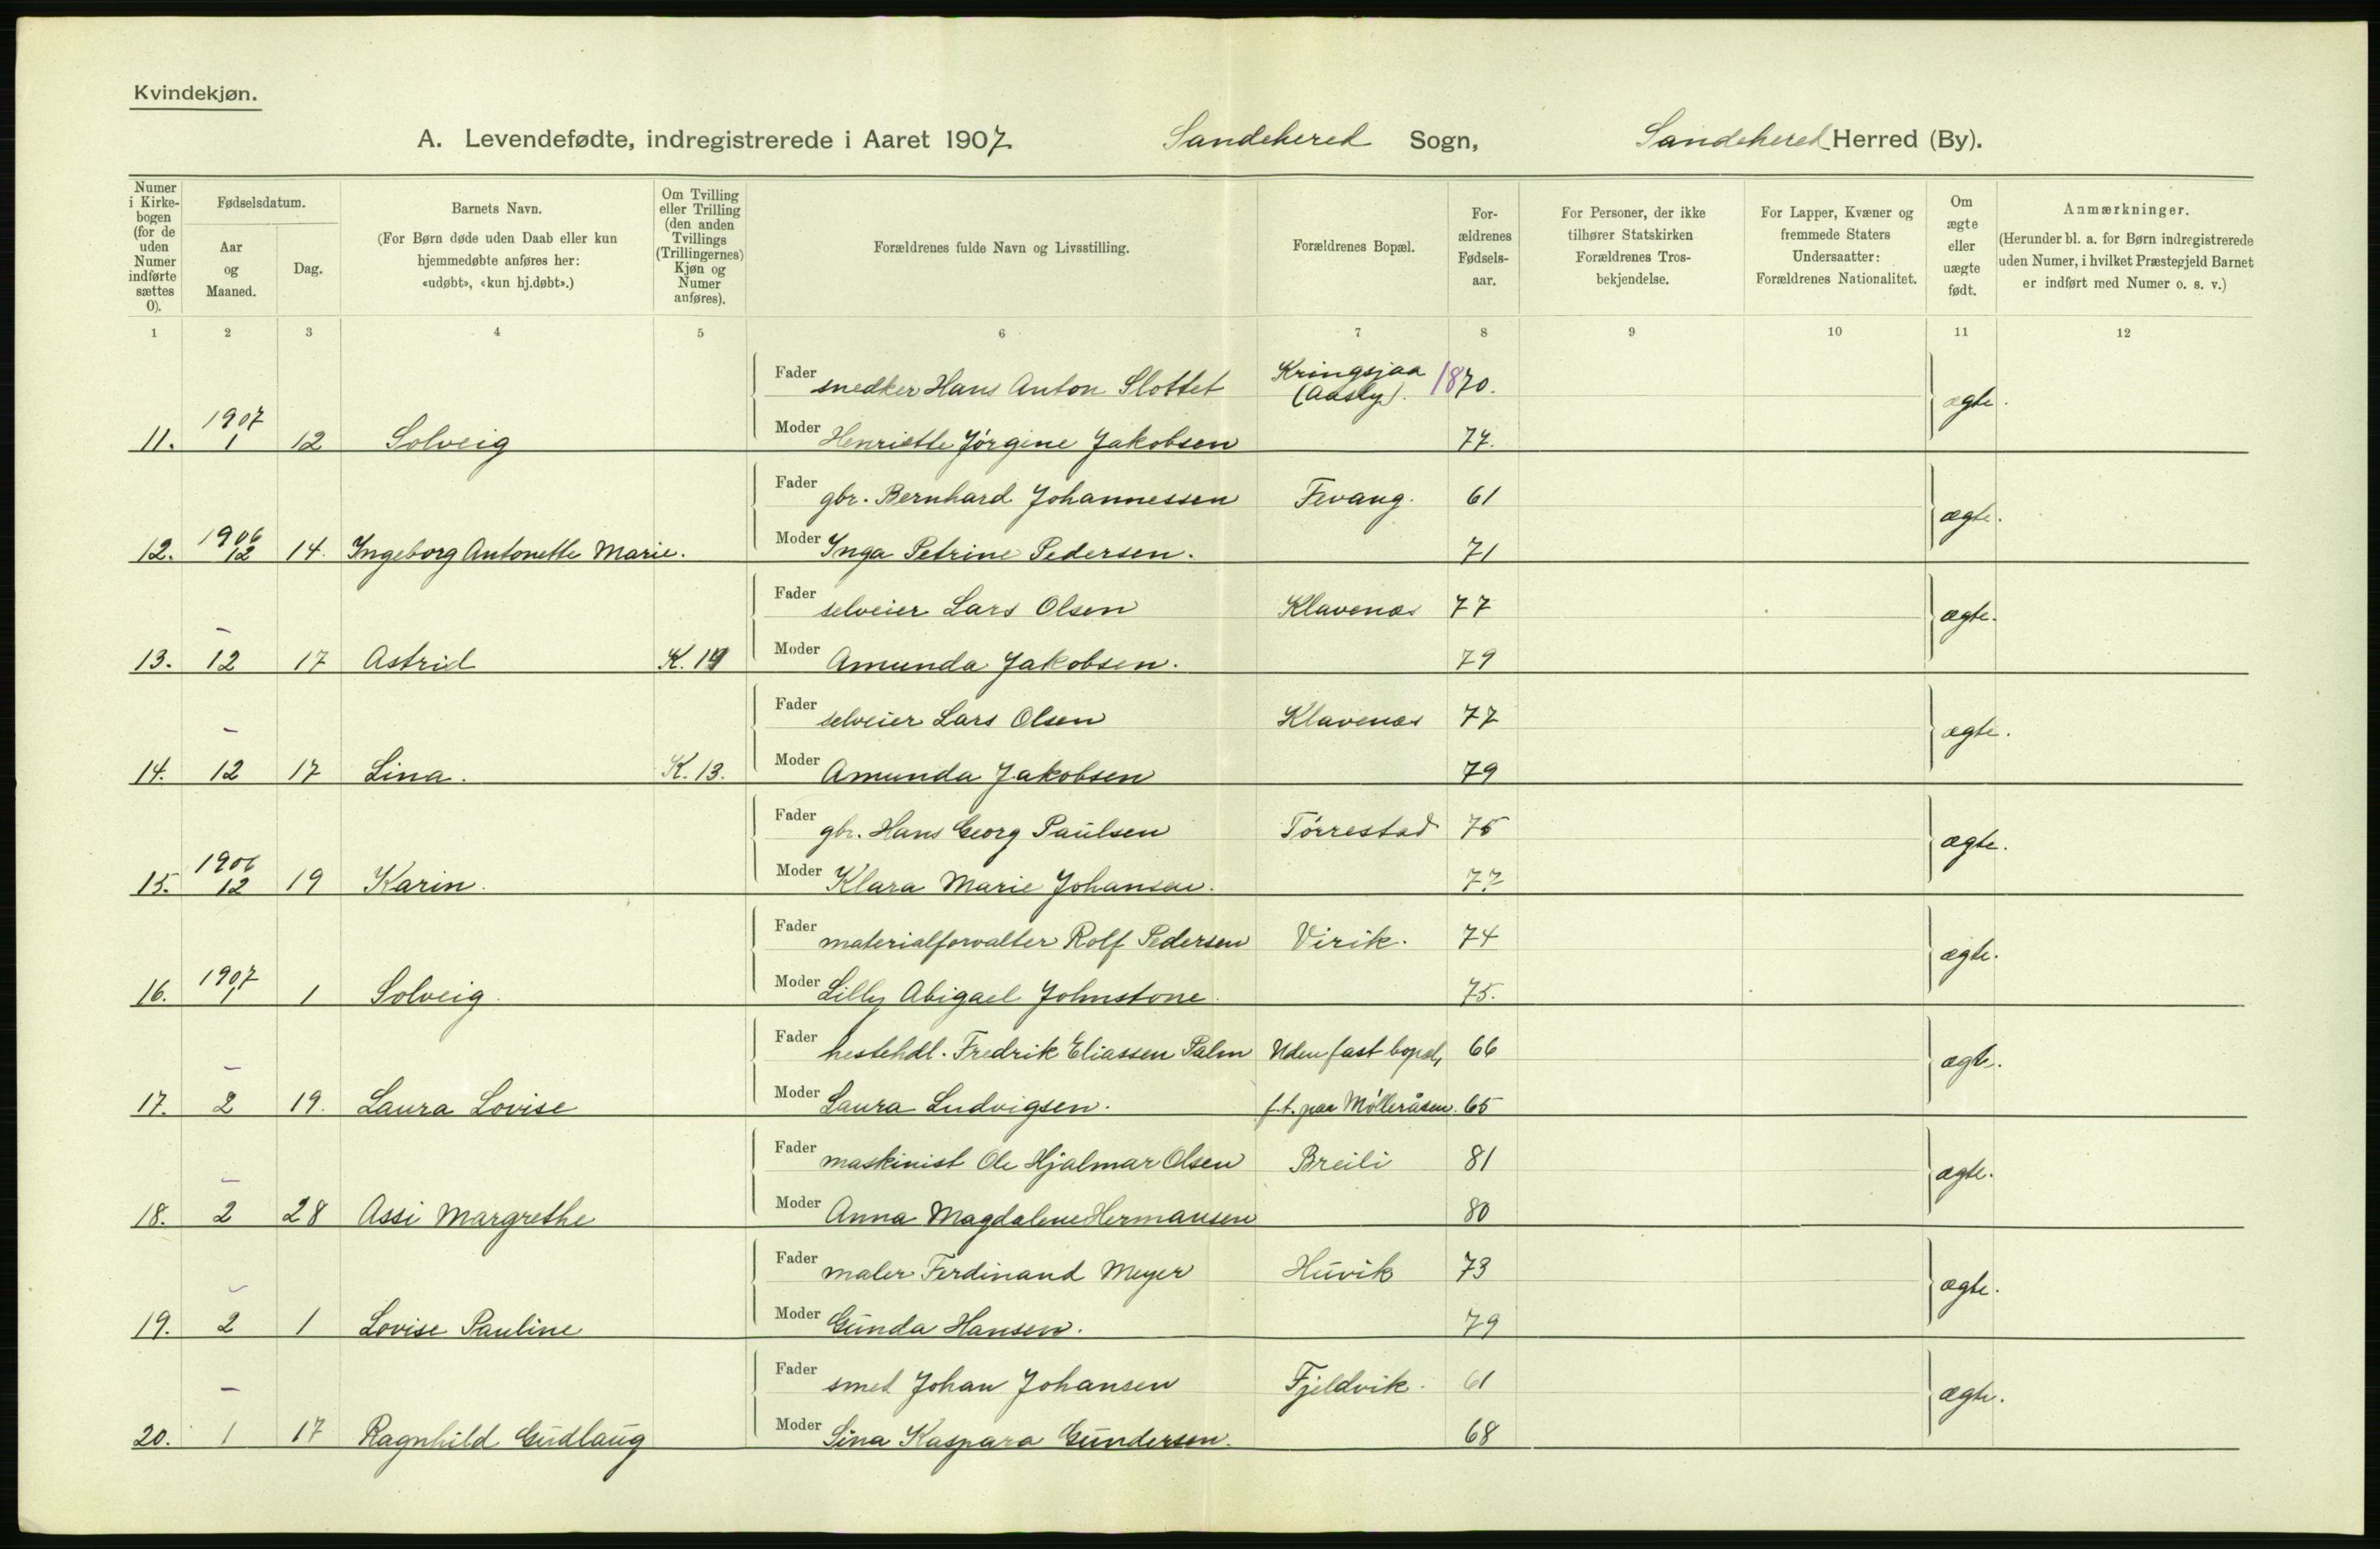 Kvindekjøn.
A. Levendefødte, indregistrerede i Aaret 1907. Sandehered Sogn, Sandehered Herred (By).
Numer i Kirkebogen (for de uden Numer indførte sættes 0).
Fødselsdatum.
Aar og Maaned.
Dag.
Barnets Navn.
(For Børn døde uden Daab eller kun hjemmedøbte anføres her: «udøbt», «kun hj.døbt».)
Om Tvilling eller Trilling (den anden Tvillings (Trillingernes) Kjøn og Numer anføres).
Forældrenes fulde Navn og Livsstilling.
Forældrenes Bopæl.
Forældrenes Fødselsaar.
For Personer, der ikke tilhører Statskirken Forældrenes Trosbekjendelse.
For Lapper, Kvæner og fremmede Staters Undersaatter: Forældrenes Nationalitet.
Om ægte eller uægte født.
Anmærkninger.
(Herunder bl. a. for Børn indregistrerede uden Numer, i hvilket Præstegjeld Barnet er indført med Numer o. s. v.)
1 2 3 4 5 6 7 8 9 10 11 12
Fader snedker Hans Anton Slottet Kringsjaa (Aasly). 1870. ægte.
11. 1907 1 12 Solveig Moder Henriette Jørgine Jakobsen 77.
Fader gbr. Bernhard Johannessen Fevang. 61 ægte.
12. 1906 12 14. Ingeborg Antonette Marie. Moder Inga Petrine Pedersen. 71
Fader selveier Lars Olsen Klavenæs 77 ægte.
13. – 12 17 Astrid K. 14 Moder Amunda Jakobsen. 79
Fader selveier Lars Olsen Klavenæs 77 ægte.
14. – 12 17 Lina. K. 13. Moder Amunda Jakobsen 79
Fader gbr. Hans Georg Paulsen Tørrestad 75 ægte.
15. 1906 12 19 Karin. Moder Klara Marie Johansen. 77
Fader materialforvalter Rolf Pedersen Virik. 74 ægte.
16. 1907 1 1 Solveig. Moder Lilly Abigael Johnstone. 75.
Fader hestehdl. Fredrik Eliassen Palm Uden fast bopæl, 66 ægte.
17. – 2 19. Laura Lovise Moder Laura Ludvigsen. f.t. paa Mølleråsen. 65
Fader maskinist Ole Hjalmar Olsen Breili 81 ægte.
18. – 2 28 Assi Margrethe Moder Anna Magdalene Hermansen 80
Fader maler Ferdinand Meyer Huvik 73 ægte.
19. – 2 1 Lovise Pauline Moder Gunda Hansen. 79
Fader smed Johan Johansen Fjeldvik. 61 ægte.
20. – 1 17 Ragnhild Gudlaug Moder Sina Kaspara Gundersen. 68